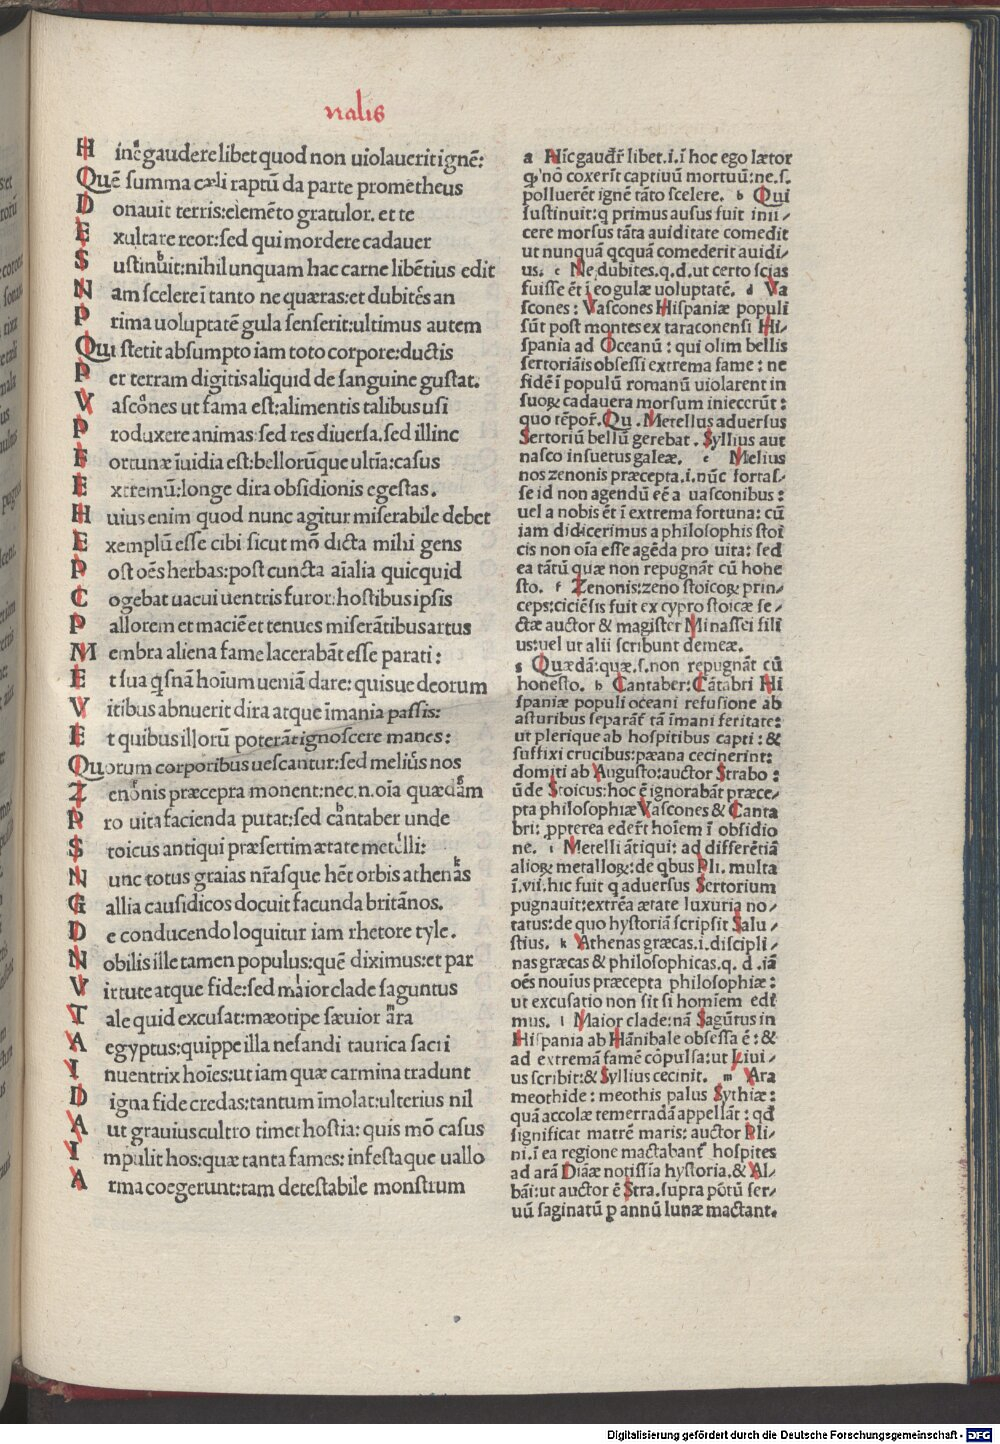 nalis
Hinc gaudere libet quod non uiolauerit ignē:
Quē summa cæli raptū da parte prometheus
Donauit terris: elemēto gratulor. et te
Exultare reor: sed qui mordere cadauer
Sustinuit: nihil unquam hac carne libētius edit
Nam scelere ī tanto ne quæras: et dubites an
Prima uoluptatē gula senserit: ultimus autem
Qui stetit absumpto iam toto corpore: ductis
Per terram digitis aliquid de sanguine gustat.
Vascones ut fama est: alimentis talibus usi
Produxere animas: sed res diuersa. sed illinc
Fortunæ īuidia est: bellorūque ultīa: casus
Extremū: longe dira obsidionis egestas.
Huius enim quod nunc agitur miserabile debet
Exemplū esse cibi sicut mō dicta mihi gens
Post oēs herbas: post cuncta aīalia quicquid
Cogebat uacui uentris furor: hostibus ipsis
Pallorem et maciē et tenues miserātibus artus
Membra aliena fame lacerabāt esse parati:
Et sua q̇snā hoīum ueniā dare: quisue deorum
Vitibus abnuerit dira atque īmania passis:
Et quibus illorū poterāt ignoscere manes:
Quorum corporibus uescantur: sed melius nos
Zenonis præcepra monent: nec. n. oīa quædam
Pro uita facienda putat: sed cantaber unde
Stoicus antiqui præsertim ætate metelli:
Nunc totus graias nr̄asque hēt orbis athenas
Gallia causidicos docuit facunda britānos.
De conducendo loquitur iam rhetore tyle.
Nobilis ille tamen populus: quē diximus: et par
Virtute atque fide: sed maior clade saguntus
Tale quid excusat: mæotipe sæuior ara
Aegyptus: quippe illa nefandi taurica sacri
Inuentrix hoīes: ut iam quæ carmina tradunt
Digna fide credas: tantum īmolat: ulterius nil
Aut grauius cultro timet hostia: quis mō casus
Impulit hos: quæ tanta fames: infestaque uallo
Arma coegerunt: tam detestabile monstrum
a Hīc gaudr̄ libet. i. ī hoc ego lætor
q' nō coxerīt captiuū mortuū: ne. s.
polluerēt ignē tāto scelere. b Qui
sustinuit: q primus ausus fuit inii/
cere morsus tāta auiditate comedit
ut nunquā qcquā comederit auidi/
us. c Ne dubites. q. d. ut certo scias
fuisse ēt ī eo gulæ uoluptatē. d Va
scones: Vascones Hispaniæ populi
sūt post montes ex taraconensi Hi/
spania ad Oceanū: qui olim bellis
sertoriāis obsessi extrema fame: ne
fidē ī populū romanū uiolarent in
suoꝝ cadauera morsum iniecerūt:
quo tēpor̄. Qu. Metellus aduersus
Sertoriū bellū gerebat. Syllius aut
nasco insuetus galeæ. e Melius
nos zenonis præcepta. i. nūc fortas/
se id non agendū eē a uasconibus:
uel a nobis ēt ī extrema fortuna: cū
iam didicerimus a philosophis stoī
cis non oīa esse agēda pro uita: sed
ea tātū quæ non repugnāt cū hone
sto. f Zenonis: zeno stoicoꝝ prin/
ceps: ciciēsis fuit ex cypro stoicæ se/
ctæ auctor & magister Minassei fili
us: uel ut alii scribunt demeæ.
g Quædā: quæ. s. non repugnāt cū
honesto. h Cantaber: Cātabri Hi
spaniæ populi oceani refusione ab
asturibus separāt tā īmani feritate:
ut plerique ab hospitibus capti: &
suffixi crucibus: pæana cecinerint:
domiti ab Augusto: auctor Strabo:
ūde Stoicus: hoc ē ignorabāt præce/
pta philosophiæ Vascones & Canta
bri: ꝓpterea ederēt hoīem ī obsidio
ne. i Metelli ātiqui: ad differētiā
alioꝝ metalloꝝ: de qbus Pli. multa
ī. vii. hic fuit q aduersus Sertorium
pugnauit: extrēa ætate luxuria no/
tatus: de quo hystoriā scripsit Salu/
stius. k Athenas græcas. i. discipli/
nas græcas & philosophicas. q. d. iā
oēs nouius præcepta philosophiæ:
ut excusatio non sit si homiem edi
mus. l Maior clade: nā Sagūtus in
Hispania ab Hānibale obsessa ē: &
ad extremā famē cōpulsa: ut Liui/
us scribit: & Syllius cecinit. m Ara
meothide: meothis palus Sythiæ:
quā accolæ temerradā appellāt: qd
significat matrē maris: auctor Pli/
ni. ī ea regione mactabant hospites
ad arā Diāæ notissīa hystoria. & Al/
bāi: ut auctor ē Stra. supra pōtū ser/
uū saginatū ꝑ annū lunæ mactant.
Digitalisierung gefördert durch die Deutsche Forschungsgemeinschaft - DFG